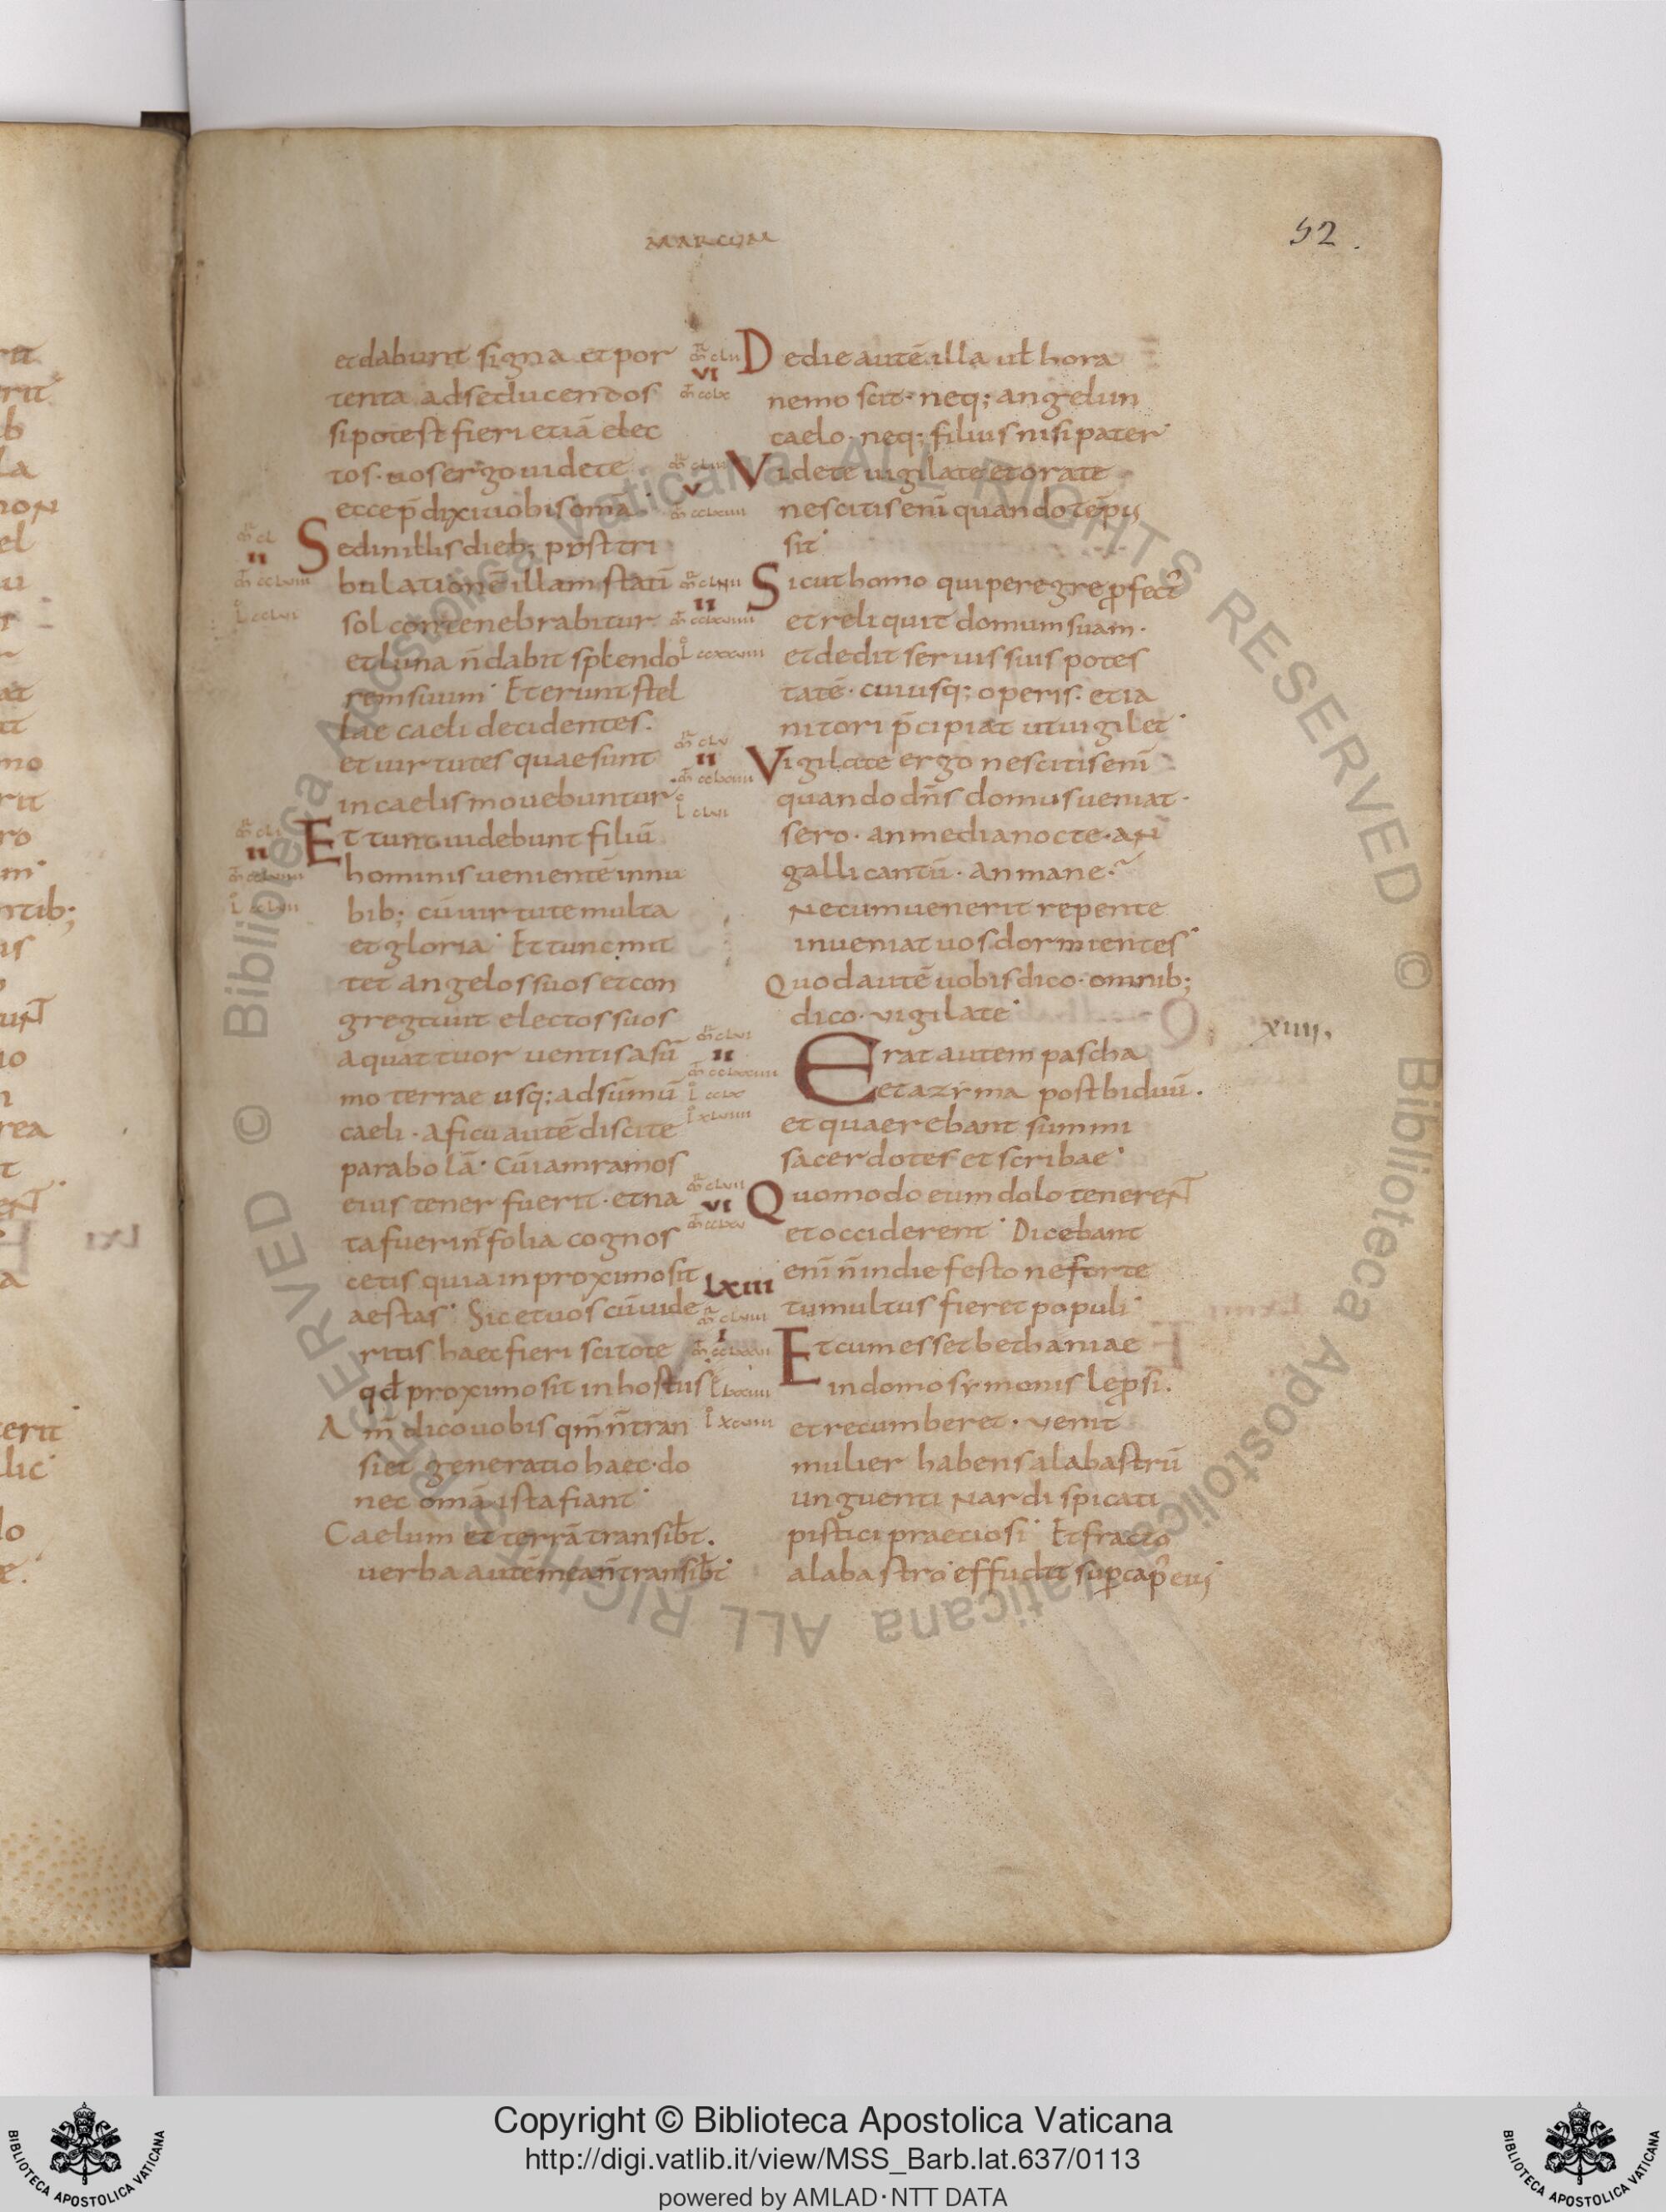 MARCUM
52.
et dabunt signa et por
tenta ad seducendos
si potest fieri etiā elec
tos · uos ergo uidete
ecce p̄dixi uobis om̄a ·
Sed in illis dieb; post tri
bulationē illam stati
sol contenebrabitur ·
et luna n̄ dabit splendo
rem suum · Et erunt stel
lae caeli decidentes ·
et uirtutes quae sunt
in caelis mouebuntur
Et tunc uidebunt filiū
hominis uenientē in nu
bib; cū uirtute multa
et gloria · Et tunc mit
tet angelos suos et con
electos suos
a quattuor uentis a sū
mo terrae usq; ad sūmū
caeli · a ficu autē discite
parabolā · Cū iam ramos
eius tener fuerit · et na
ta fuerin̄ folia cognos
cetis quia in proximo sit
aestas · Sic et uos cū uide
ritis haec fieri scitote
qd̄ proximo sit in hostiis
Am̄ dico uobis qm̄ n̄ tran
siet generatio haec · do
nec om̄a ista fiant ·
Caelum et terrā transibt̄ ·
uerba autē mea n̄ transibt̄ ·
VI
De die autē illa ut̄ hora
nemo scit · neq; angeli in
caelo · neq; filius nisi pater ·
V
Videte uigilate et orate
nescitis enī quando tēpus
sit ·
II
Sicut homo qui peregre ꝓfect᾽
et reliquit domum suam ·
et dedit seruis suis potes
tatē · cuiusq; operis · et ia
nitori p̄cipiat ut uigilet ·
II
Vigilate ergo nescitis enī
quando dn̄s domus ueniat ·
sero · an media nocte · an
galli cantū · an mane ·
Ne cum uenerit repente
inueniat uos dormientes ·
Quod autē uobis dico · omnib;
dico · uigilate ·
XIIII.
II
Erat autem pascha
et azyma post biduū ·
et quaerebant summi
sacerdotes et scribae ·
VI
Quomodo eum dolo tenerent
et occiderent · Dicebant
enī n̄ in die festo ne forte
tumultus fieret populi ·
LXIII
I
Et cum esset bethaniae
in domo symonis leꝓsi ·
et recumberet · uenit
mulier habens alabastrū
unguenti nardi spicati
pistici praetiosi · Et fracto
alabastro effudit suꝑ cap᾽ eius ·
Copyright © Biblioteca Apostolica Vaticana
http://digi.vatlib.it/view/MSS_Barb.lat.637/0113
powered by AMLAD·NTT DATA
BIBLIOTECA APOSTOLICA VATICANA
BIBLIOTECA APOSTOLICA VATICANA